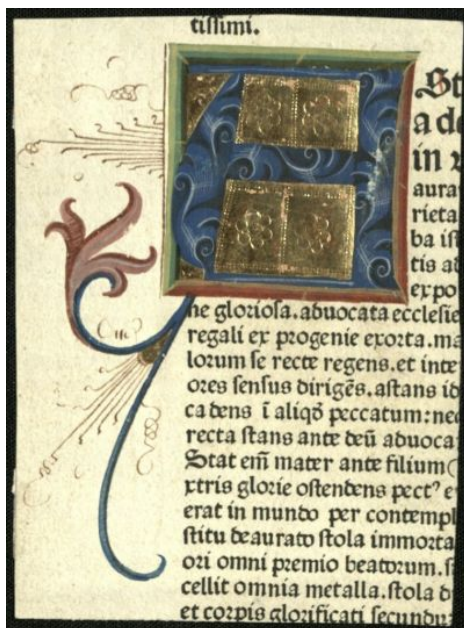 tissimi.
St
a de
in v
aura
rieta
ba ist
tis ad
expo
ne gloriosa.aduocata ecclesie
regali ex progenie exorta.ma
lorum se recte regens.et inte
ores sensus dirigēs.astans id
cadens ī aliqd̄ peccatum:nec
recta stans ante deū aduoca
Stat em̄ mater ante filium
xtris glorie ostendens pect⁹ e
erat in mundo per contempl
stitu deaurato stola immorta
ori omni premio beatorum.s
cellit omnia metalla.stola d
et corpis glorificati secundu